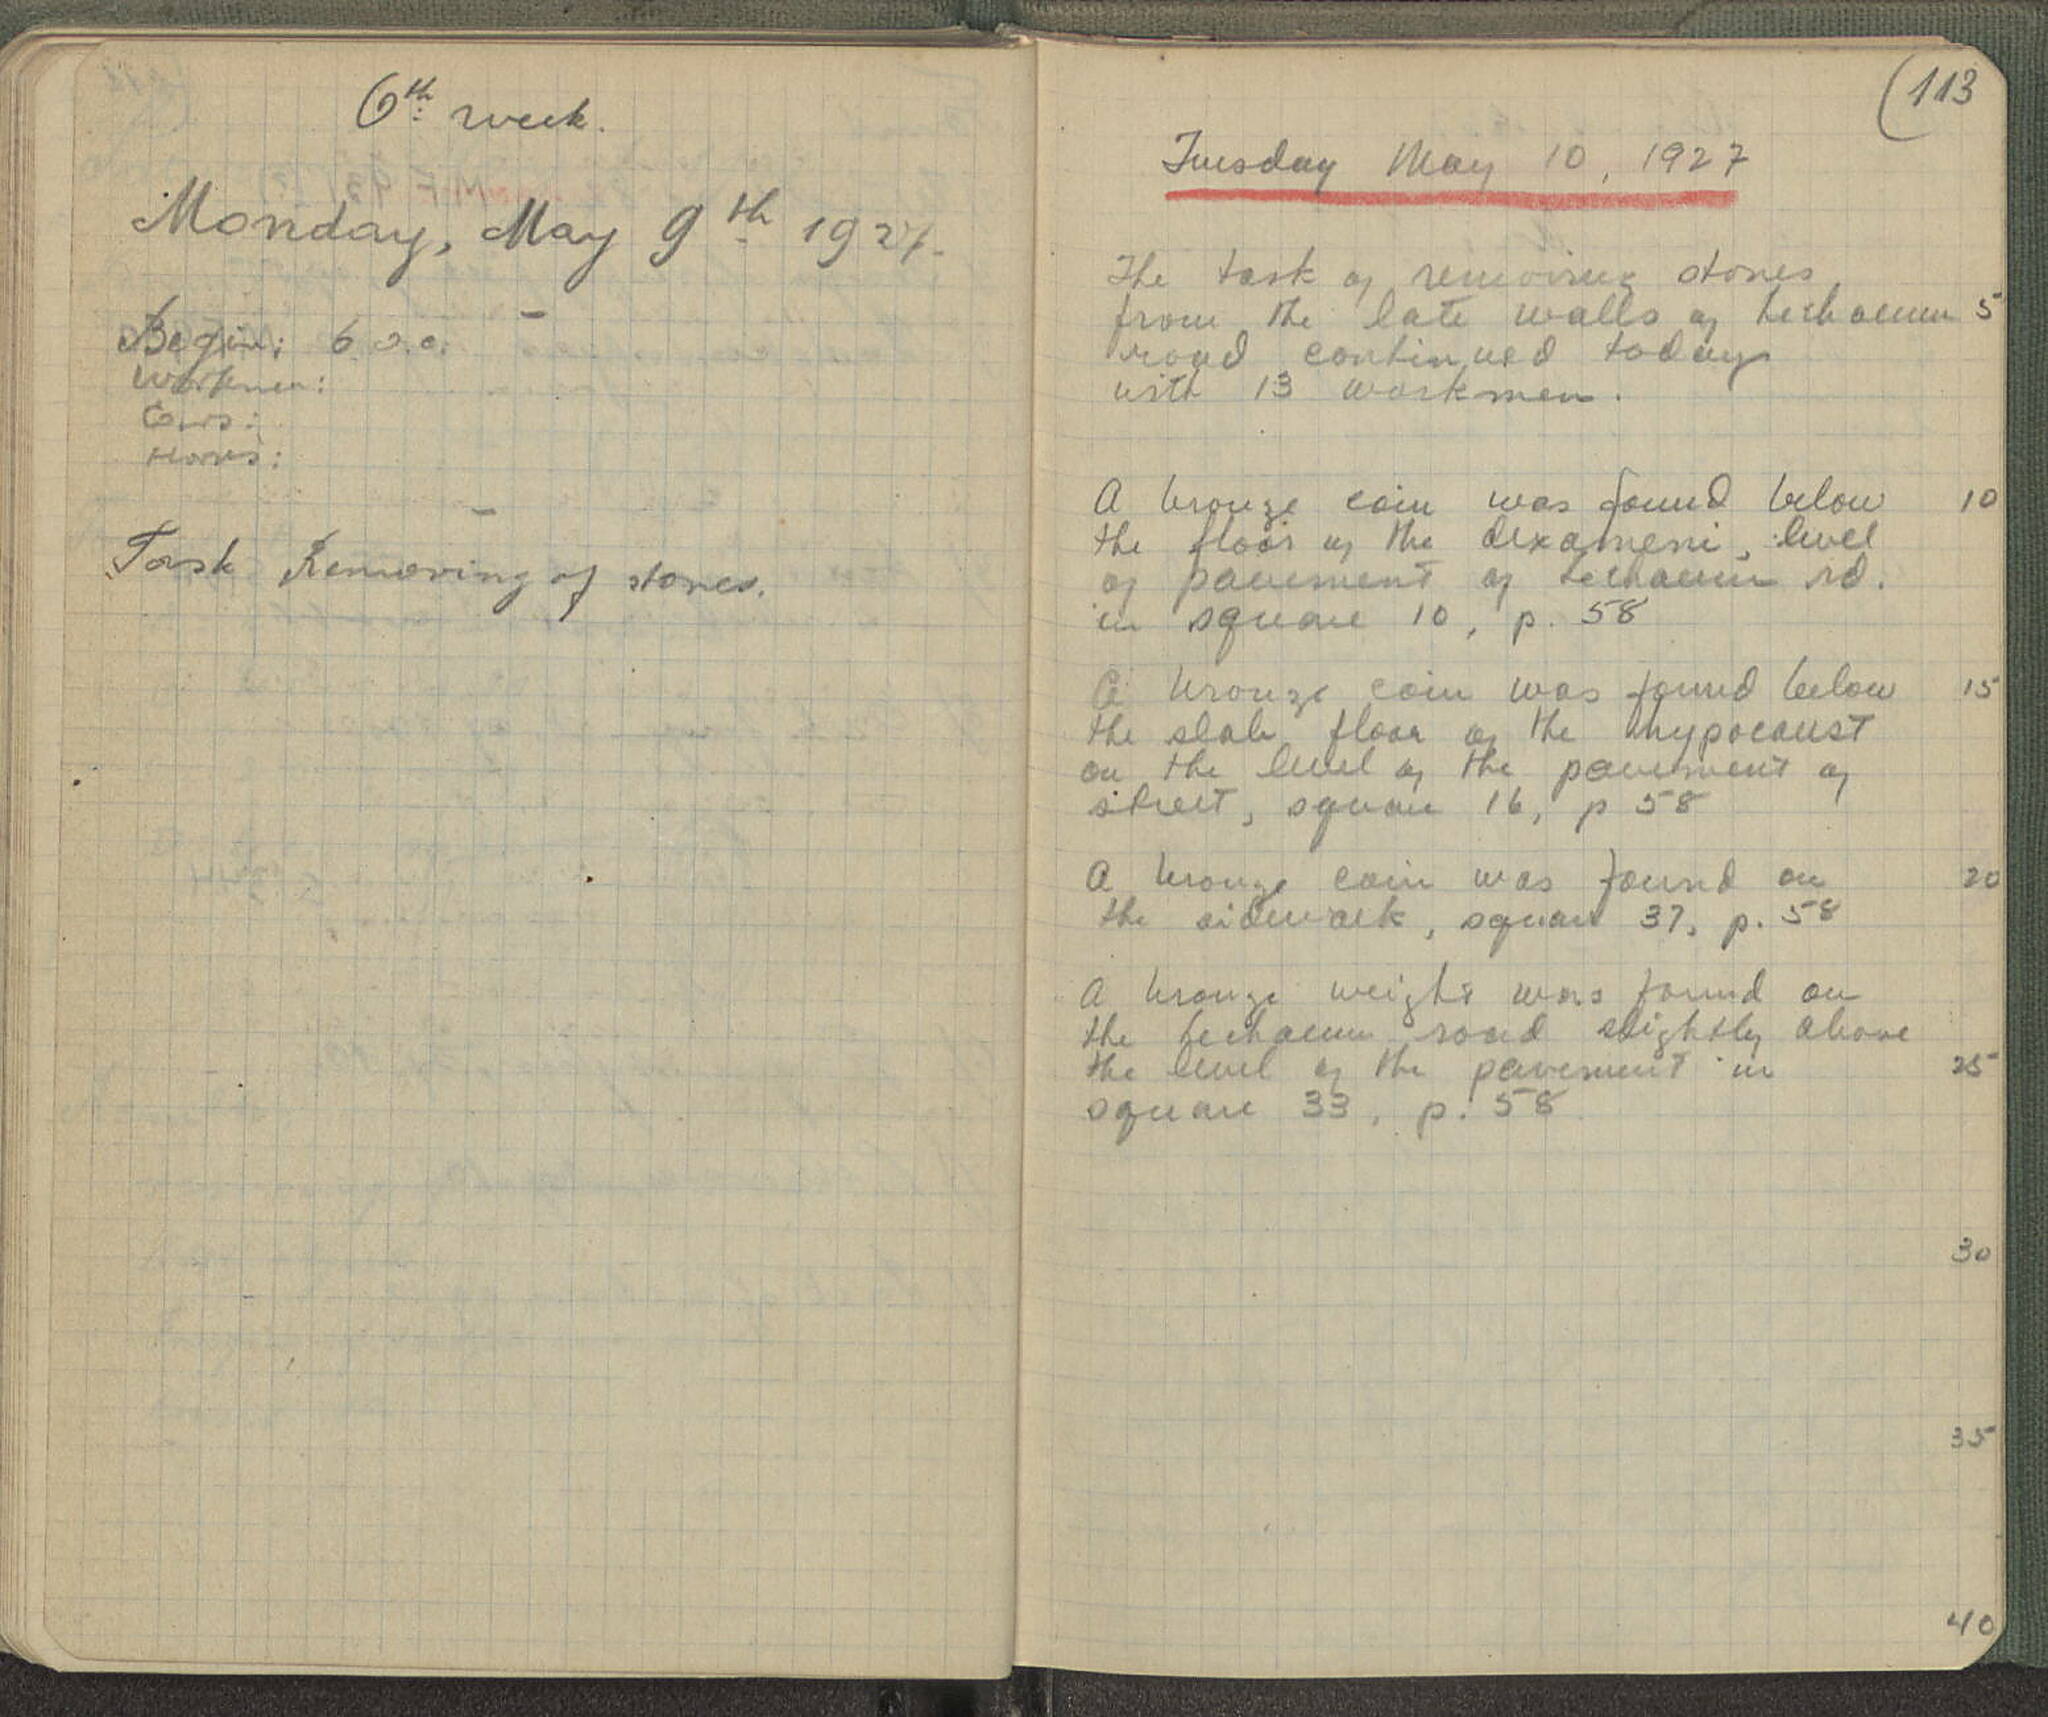 6th week.
Monday, May 9th 1927.
Begin: 6.
Workmen:
Cars:
Hours:
Task Removing of stones.
(113
Tuesday May 10, 1927
The task of removing stones
from the late walls of Lechaeum 5
road continued today
with 13 workmen.
A bronze coin was found below 10
the floor of the dexameni, level
of pavement of Lechaeum rd.
in square 10, p. 58
A bronze coin was found below 15
the slab floor of the hypocaust
on the level of the pavement of
street, square 16, p 58
A bronze coin was found on 20
the sidewalk, square 37, p. 58
A bronze weight was found on
the Lechaeum road slightly above
the level of the pavement in 25
square 33, p. 58
30
35
40